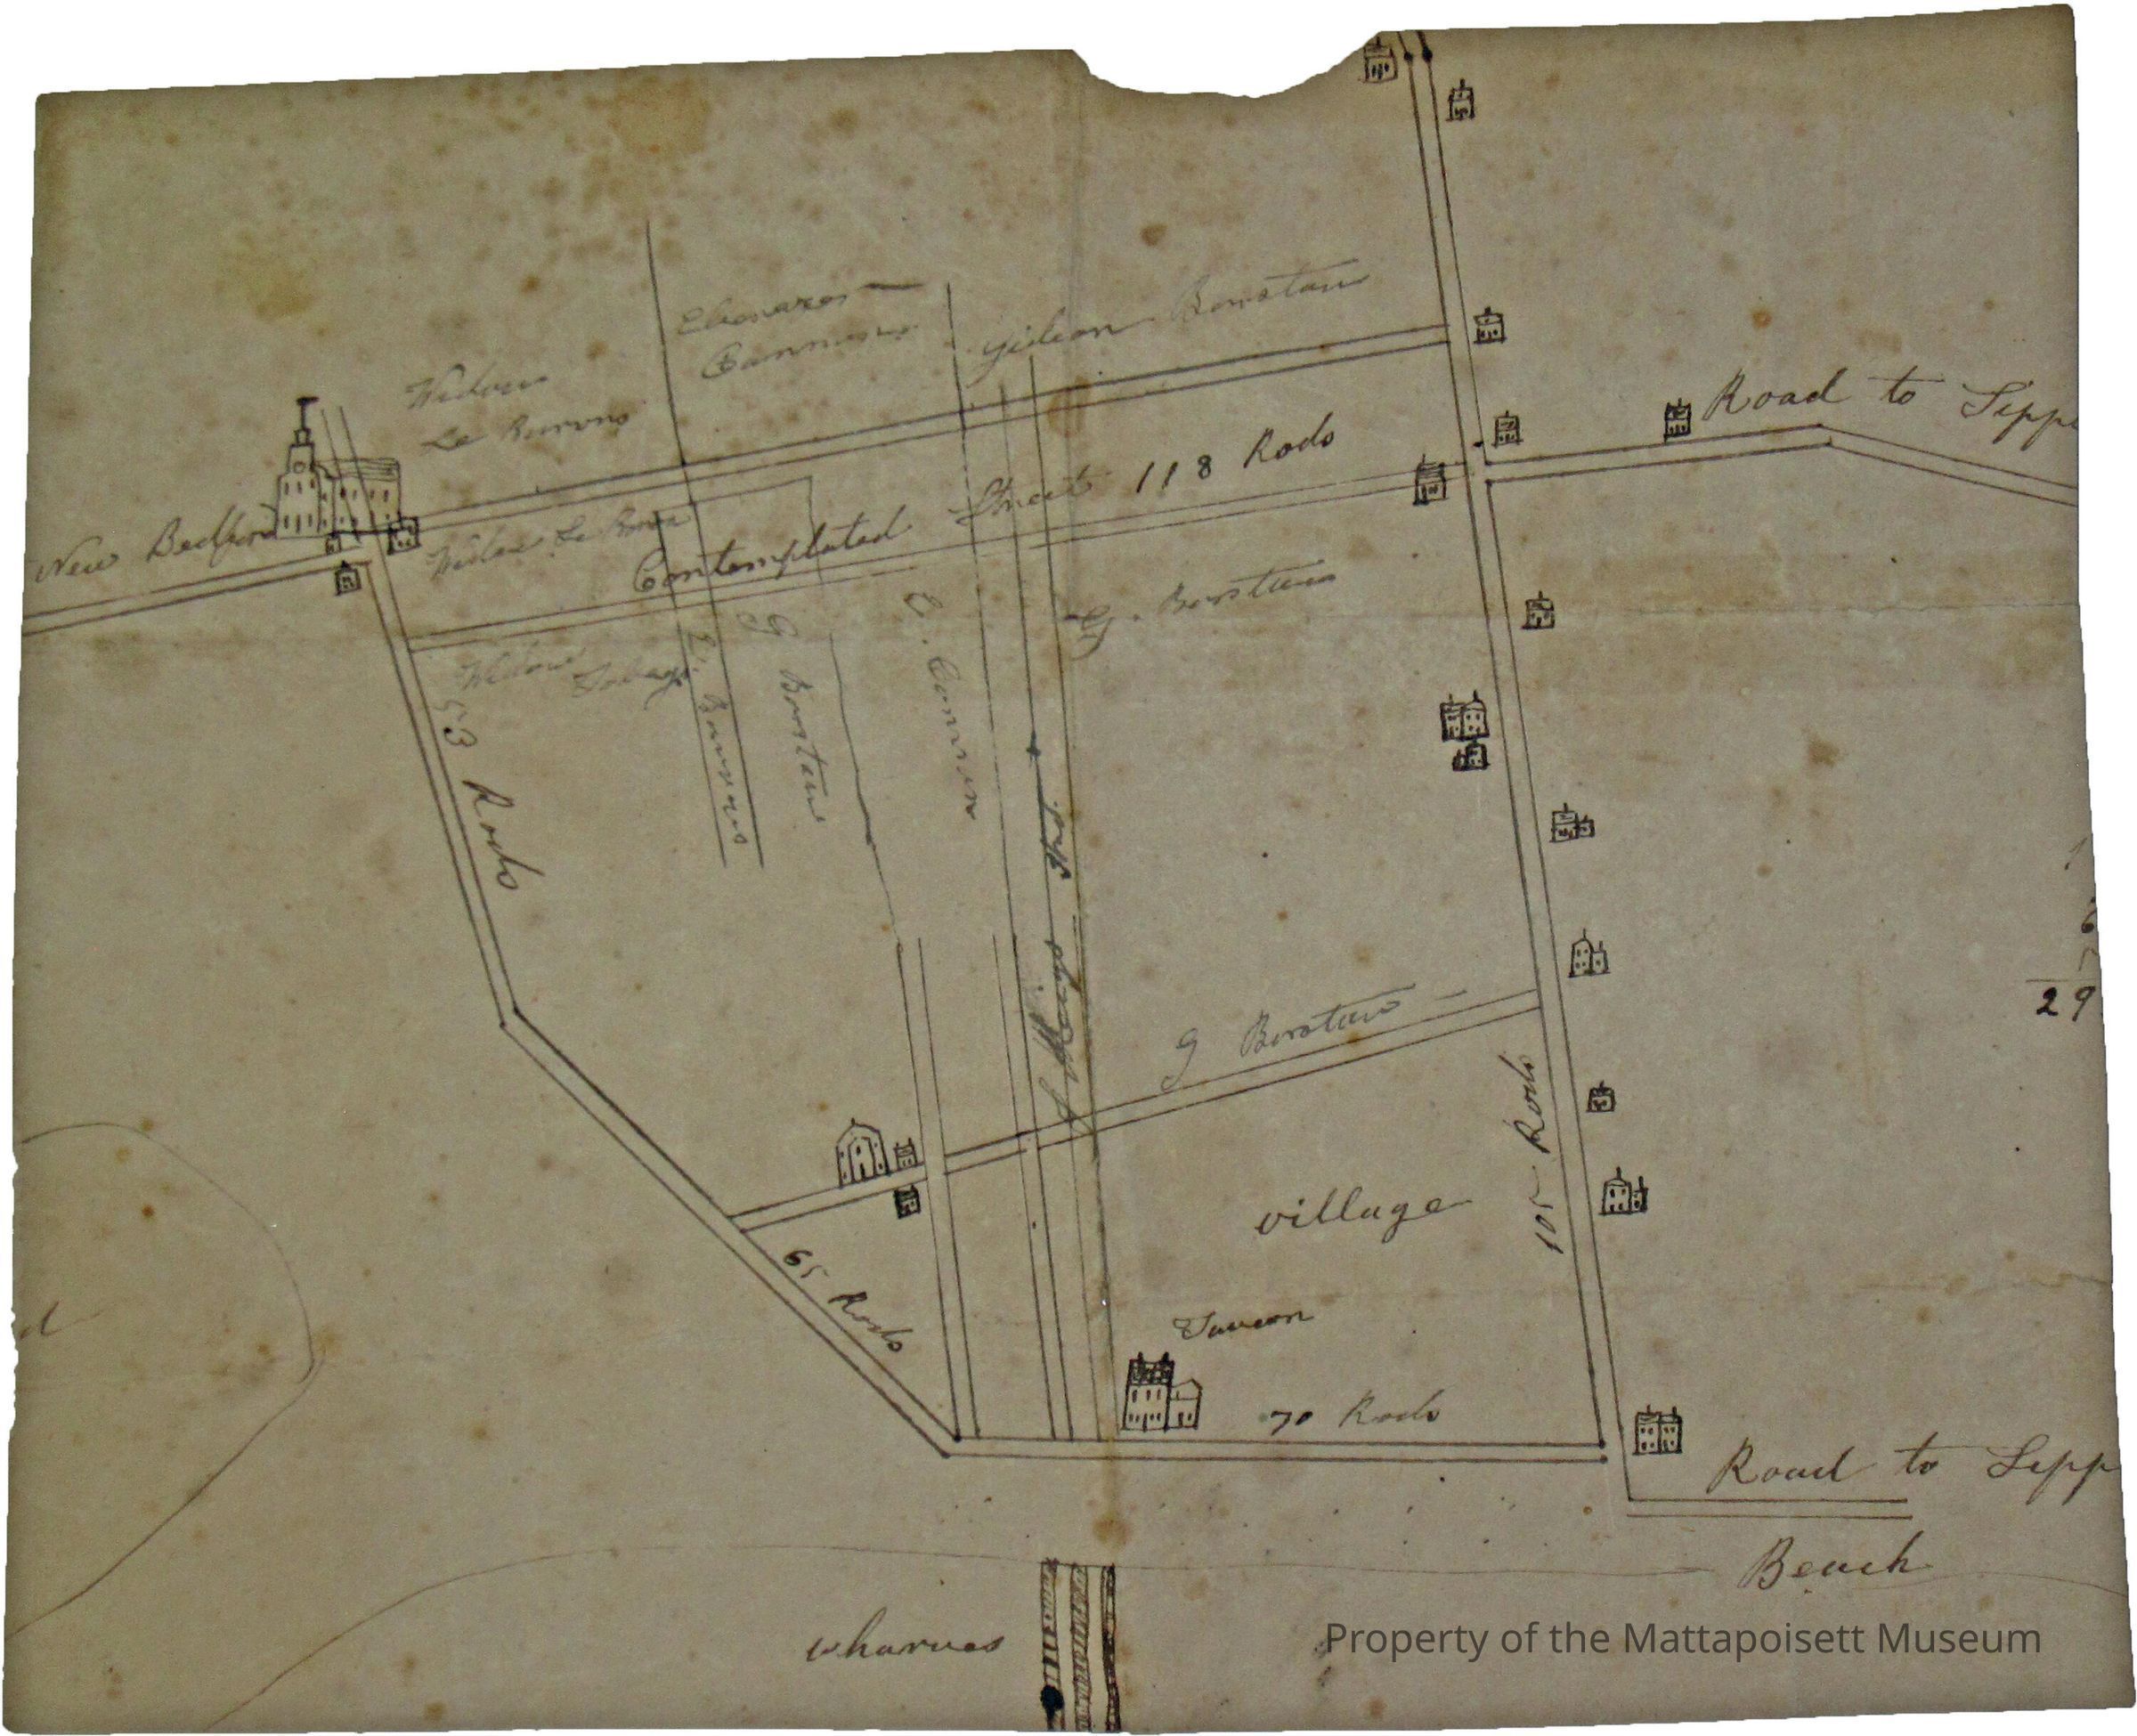 Ebenezer
Cannon
Gideon Barstow
Widow
Le Barons
Road to Sipp
118 Rods
Contemplated Street
New Bedford
Widow Le Baron
G. Barstow
Widow
E.
G Barstow
E. Cannon
53 Rods
29
G Barstow
105 Rods
village
65 Rods
Tavern
70 Rods
Road to Sipp
Beach
wharves
Property of the Mattapoisett Museum